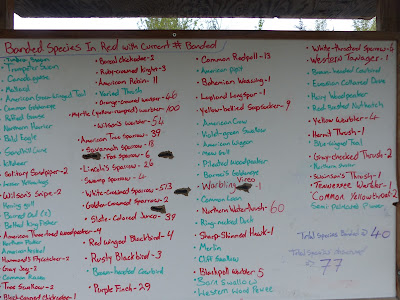 Banded Species In Red with Current # Banded
Trumpeter Swan
Canada goose
Mallard
American Green-Winged Teal
Common Goldeneye
Ruffed Grouse
Northern Harrier
Bald Eagle
Sandhill Crane
Killdeer
Solitary Sandpiper-2
Lesser Yellowlegs
Wilson's Snipe-2
Herring gull
Belted Kingfisher
American Three-toed woodpecker-4
Northern Flicker
American kestrel
Hammond's Flycatcher-2
Gray Jay-3
Common Raven
Tree Swallow-2
Black-capped Chickadee-1
Boreal chickadee-2
Ruby-crowned Kinglet-3
American Robin-11
Varied Thrush
Orange-crowned warbler-46
Myrtle (yellow-rumped) warbler-100
Wilson's warbler-54
American Tree Sparrow-39
Savannah Sparrow-13
Fox Sparrow-6
Lincoln's Sparrow-26
Swamp Sparrow-4
White-crowned Sparrow-573
Golden-crowned Sparrow-2
Slate-Colored Junco-39
Red Winged Blackbird-4
Rusty Blackbird-3
Brown-headed Cowbird
Purple Finch-29
Common Redpoll-13
American pipit
Bohemian Waxwing-1
Lapland Longspur-1
Yellow-bellied Sapsucker-9
American Crow
Violet-green Swallow
American Wigeon
Mew Gull
Pileated Woodpecker
Barrow's Goldeneye
Warbling Vireo
-1
Common Loon
Northern Waterthrush-60
Ring-necked Duck
Sharp-Shinned Hawk-1
Merlin
Cliff Swallow
Blackpoll Warbler-5
Barn Swallow
Western Wood Pewee
White-throated Sparrow-6
Western Tanager-1
Brown-headed Cowbird
Eurasian Collared Dove
Hairy Woodpecker
Red Breasted Nuthatch
Yellow Warbler-4
Hermit Thrush-1
Blue-winged Teal
Gray-cheeked Thrush-2
Northern Shoveler
Swainson's Thrush-1
Tennessee Warbler-1
Common Yellowthroat-2
Semi palmated Plover
Total Species Banded = 40
Total Species Observed
= 77